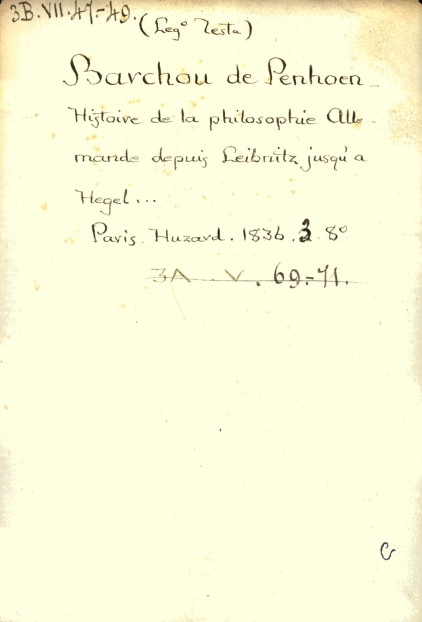 3B. VII. 47.-49.
(Leg° Testa)
Barchou de Penhoen
Histoire de la philosophie Alle-
mande depuis Leibnitz jusqu'a
Hegel...
Paris. Huzard. 1836. 3. 8°
3A. V. 69.-71.